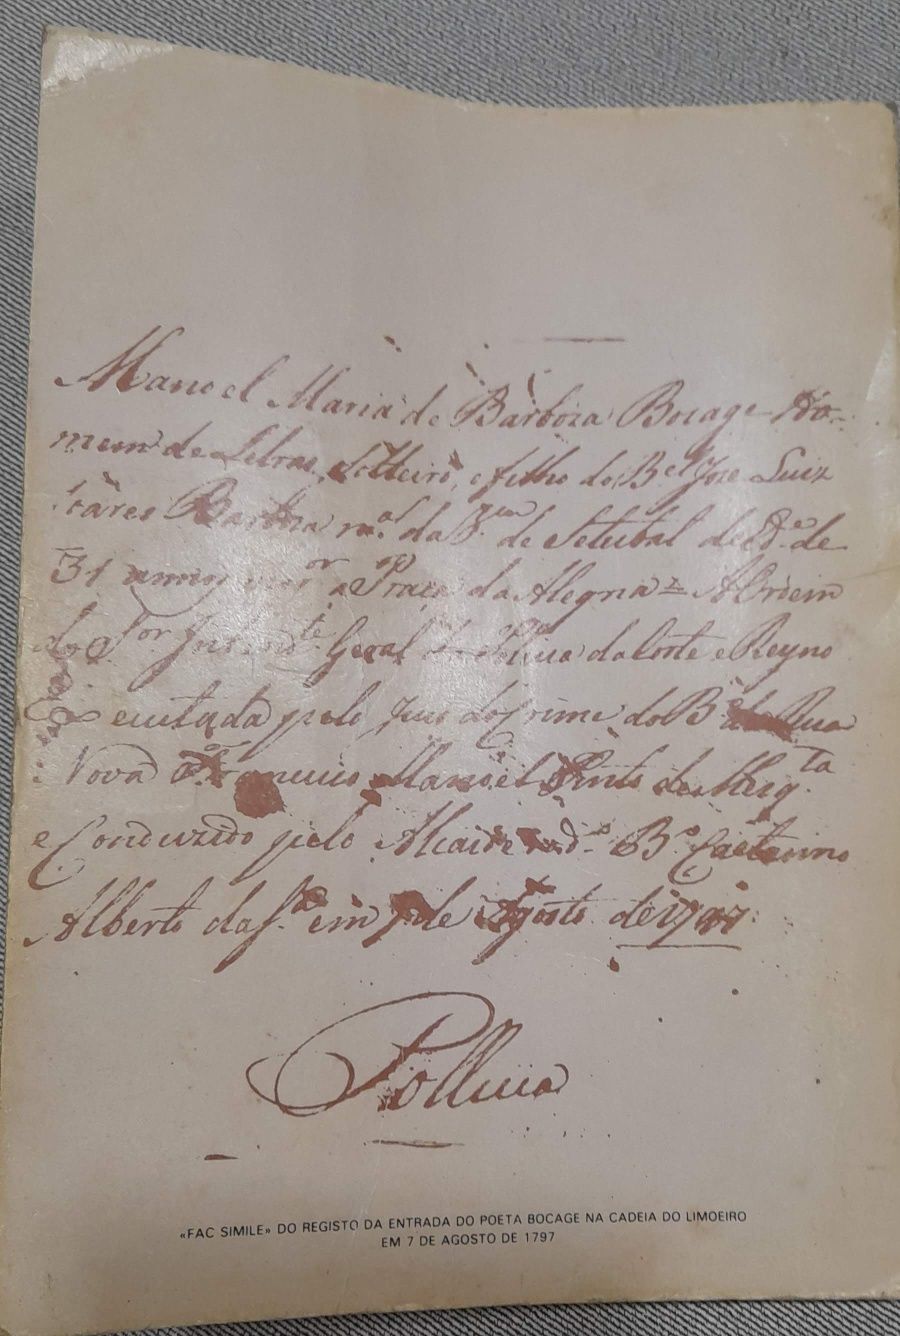 Manoel Maria de Barboza Bocage Ho-
mem de Letras, solteiro, e filho do B.el Joze Luiz
Soares Barboza n.al da V.a de Setubal de id.e de
31 annos, mor.or a Praça da Alegria = A Ordem
do S.or Intend.te Geral da Policia da Corte e Reyno
Executada pelo Juiz do Crime do B.º da Rua
Nova Francisco Manoel Pinto de Mesq.ta
e Conduzido pelo Alcaide do d.º B.º Caetano
Alberto da S.ª em 7 de Agosto de 1797
Policia
«FAC SIMILE» DO REGISTO DA ENTRADA DO POETA BOCAGE NA CADEIA DO LIMOEIRO
EM 7 DE AGOSTO DE 1797